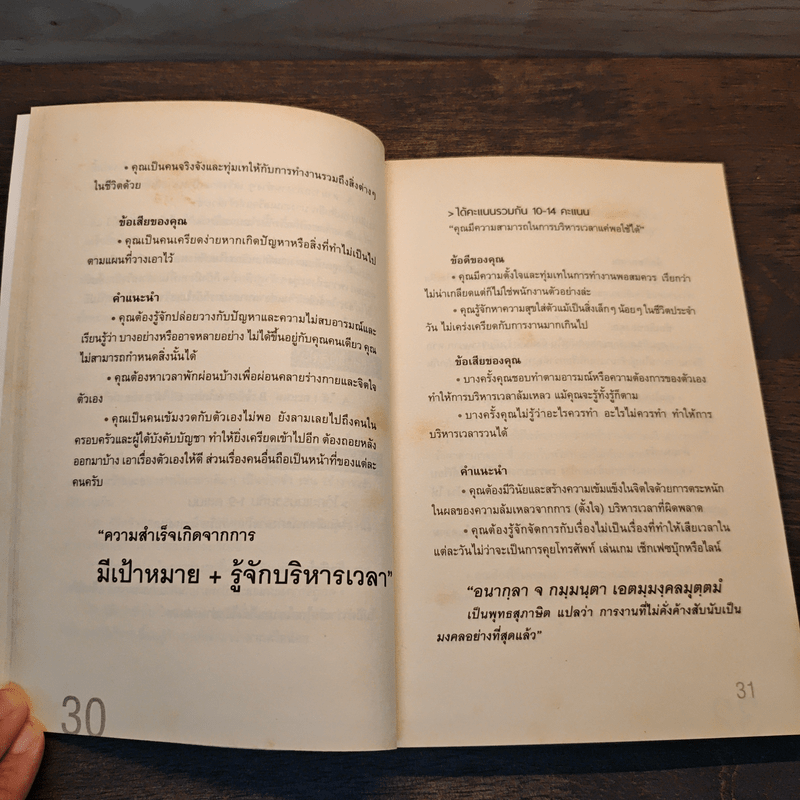 • คุณเป็นคนจริงจังและทุ่มเทให้กับการทำงานรวมถึงสิ่งต่างๆ
ในชีวิตด้วย
ข้อเสียของคุณ
• คุณเป็นคนเครียดง่ายหากเกิดปัญหาหรือสิ่งที่ทำไม่เป็นไป
ตามแผนที่วางเอาไว้
คำแนะนำ
• คุณต้องรู้จักปล่อยวางกับปัญหาและความไม่สบอารมณ์และ
เรียนรู้ว่า บางอย่างหรืออาจหลายอย่าง ไม่ได้ขึ้นอยู่กับคุณคนเดียว คุณ
ไม่สามารถกำหนดสิ่งนั้นได้
• คุณต้องหาเวลาพักผ่อนบ้างเพื่อผ่อนคลายร่างกายและจิตใจ
ตัวเอง
• คุณเป็นคนเข้มงวดกับตัวเองไม่พอ ยังลามเลยไปถึงคนใน
ครอบครัวและผู้ใต้บังคับบัญชา ทำให้ยิ่งเครียดเข้าไปอีก ต้องถอยหลัง
ออกมาบ้าง เอาเรื่องตัวเองให้ดี ส่วนเรื่องคนอื่นถือเป็นหน้าที่ของแต่ละ
คนครับ
“ความสำเร็จเกิดจากการ
มีเป้าหมาย + รู้จักบริหารเวลา”
30
> ได้คะแนนรวมกัน 10-14 คะแนน
“คุณมีความสามารถในการบริหารเวลาแค่พอใช้ได้”
ข้อดีของคุณ
• คุณมีความตั้งใจและทุ่มเทในการทำงานพอสมควร เรียกว่า
ไม่น่าเกลียดแต่ก็ไม่ใช่พนักงานตัวอย่างล่ะ
• คุณรู้จักหาความสุขใส่ตัวแม้เป็นสิ่งเล็กๆ น้อยๆ ในชีวิตประจำ
วัน ไม่เคร่งเครียดกับการงานมากเกินไป
ข้อเสียของคุณ
• บางครั้งคุณชอบทำตามอารมณ์หรือความต้องการของตัวเอง
ทำให้การบริหารเวลาล้มเหลว แม้คุณจะรู้ทั้งรู้ก็ตาม
• บางครั้งคุณไม่รู้ว่าอะไรควรทำ อะไรไม่ควรทำ ทำให้การ
บริหารเวลารวนได้
คำแนะนำ
• คุณต้องมีวินัยและสร้างความเข้มแข็งในจิตใจด้วยการตระหนัก
ในผลของความล้มเหลวจากการ (ตั้งใจ) บริหารเวลาที่ผิดพลาด
• คุณต้องรู้จักจัดการกับเรื่องไม่เป็นเรื่องที่ทำให้เสียเวลาใน
แต่ละวันไม่ว่าจะเป็นการคุยโทรศัพท์ เล่นเกม เช็กเฟซบุ๊กหรือไลน์
“อนากุลา จ กมฺมนฺตา เอตมฺมงฺคลมุตฺตมํ
เป็นพุทธสุภาษิต แปลว่า การงานที่ไม่คั่งค้างสับนับเป็น
มงคลอย่างที่สุดแล้ว”
31